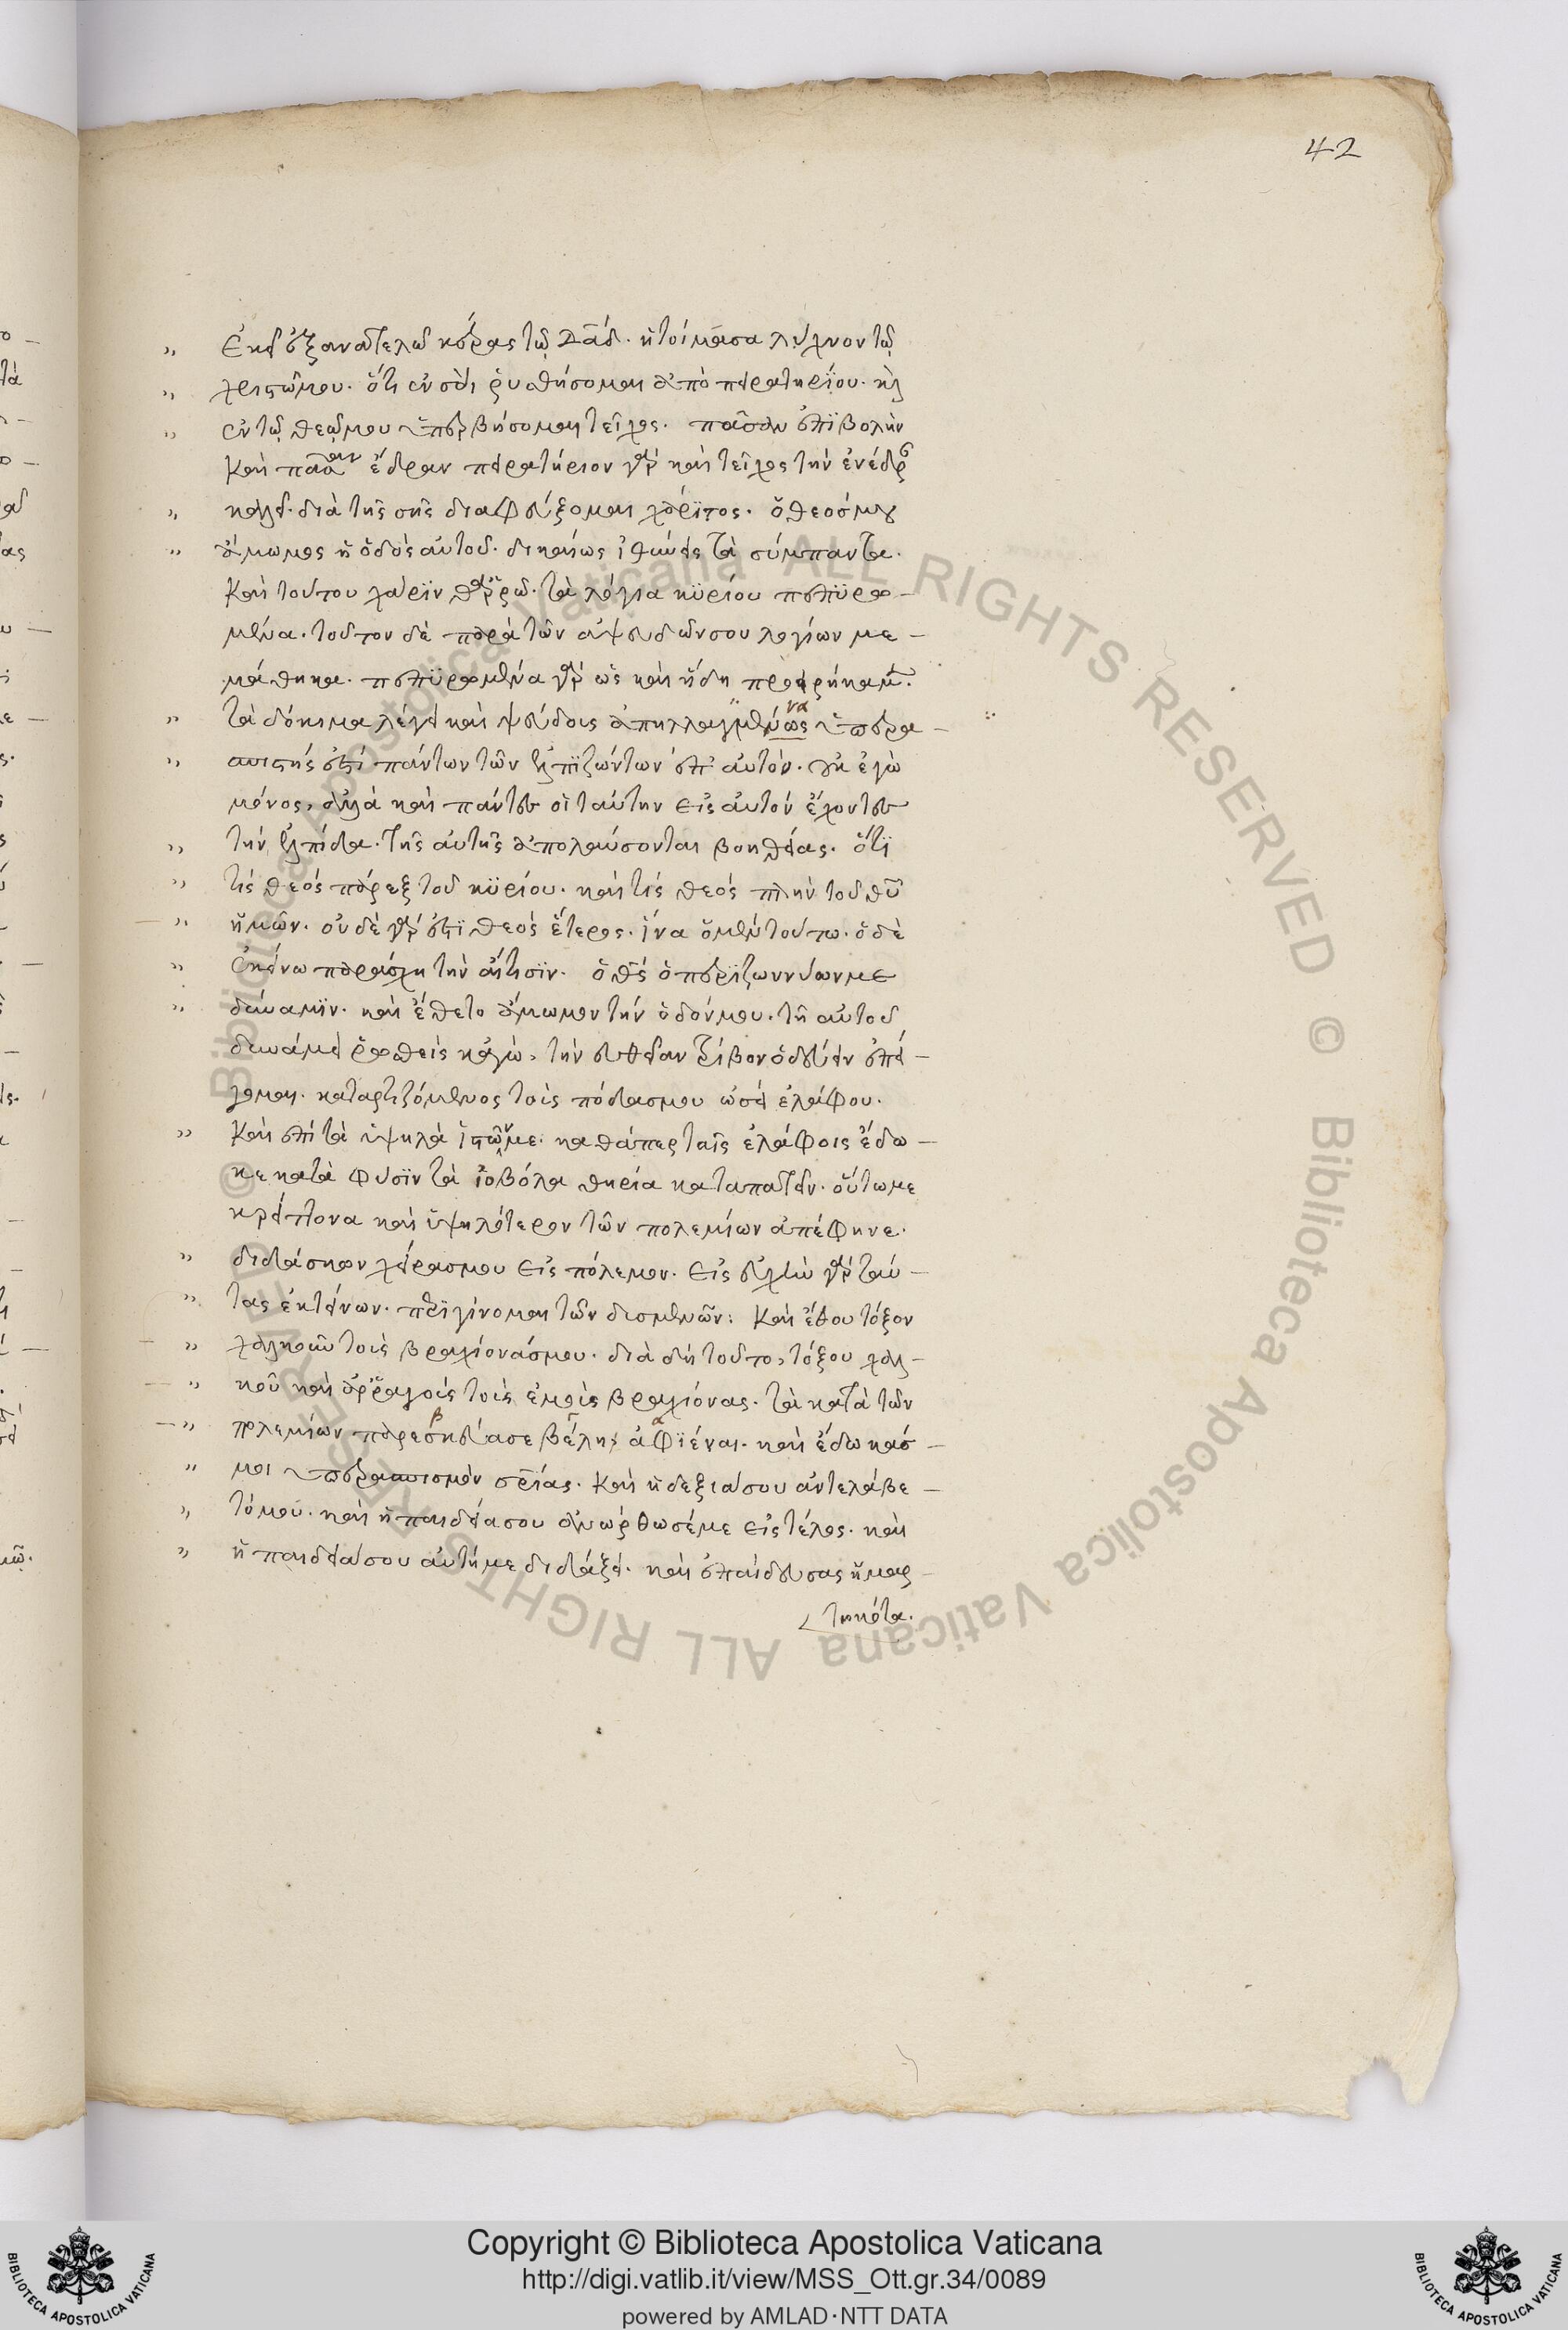 42
„ ἐκεῖ ἐξανατελῶ κέρας τῷ δᾱδ. ἡτοίμασα λύχνον τῷ
„ χριστῷ μου. ὅτι ἐν σοὶ ῥυσθήσομαι ἀπὸ πειρατηρίου. καὶ
„ ἐν τῷ θεῷ μου ὑπερβήσομαι τεῖχος. πᾶσαν ἐπιβολὴν
καὶ πᾶσαν ἕδραν πειρατήριον γὰρ καὶ τεῖχος τὴν ἐνέδραν
„ καλεῖ. διὰ τῆς σῆς διαφεύξομαι χάριτος. ὁ θεός μου
„ ἄμωμος ἡ ὁδὸς αὐτοῦ. δικαίως ἰθύνεις τὰ σύμπαντα.
καὶ τούτου χάριν θαρρῶ. τὰ λόγια κυρίου πεπυρω-
μένα. τοῦτον δὲ παρὰ τῶν ἀψευδῶν σου λογίων με-
μάθηκα. πεπυρωμένα γὰρ ὡς καὶ ἤδη προειρήκαμεν.
„ τὰ δόκιμα λέγει καὶ ψεύδους ἀπηλλαγμένως να ὑπερα-
„ σπιστής ἐστι πάντων τῶν ἐλπιζόντων ἐπ' αὐτόν. οὐκ ἐγὼ
μόνος, ἀλλὰ καὶ πάντες οἱ ταύτην εἰς αὐτὸν ἔχοντες
„ τὴν ἐλπίδα. τῆς αὐτῆς ἀπολαύσονται βοηθείας. ὅτι
„ τίς θεὸς πάρεξ τοῦ κυρίου. καὶ τίς θεὸς πλὴν τοῦ θ̄υ
„ ἡμῶν. οὐδὲ γάρ ἐστι θεὸς ἕτερος. ἵνα ὁ μὲν τούτῳ. ὁ δὲ
„ ἐκείνῳ παράσχῃ τὴν αἴτησιν. ὁ θ̄ς ὁ περιζωννύων με
„ δύναμιν. καὶ ἔθετο ἄμωμον τὴν ὁδόν μου. τῇ αὐτοῦ
δυνάμει ῥωσθεὶς κἀγὼ, τὴν εὐθεῖαν τρίβον ὁδεύειν ἐπεί-
γομαι. καταρτιζόμενος τοὺς πόδας μου ὡσεὶ ἐλάφου.
„ καὶ ἐπὶ τὰ ὑψηλὰ ἱστῶν με. καθάπερ ταῖς ἐλάφοις ἔδω-
κε κατὰ φύσιν τὰ ἰοβόλα θηρία καταπατεῖν. οὕτω με
κρείττονα καὶ ὑψηλότερον τῶν πολεμίων ἀπέφηνε.
„ διδάσκων χεῖράς μου εἰς πόλεμον. εἰς εὐχὴν γὰρ ταύ-
„ τας ἐκτείνων. περιγίνομαι τῶν δυσμενῶν: καὶ ἔθου τόξον
„ χαλκοῦν τοὺς βραχίονάς μου. διὰ δὴ τοῦτο, τόξου χαλ-
„ κοῦ καὶ ἀρραγοῦς τοὺς ἐμοὺς βραχίονας. τὰ κατὰ τῶν
„ πολεμίων παρεσκεύασε βέλη ἀφιέναι. καὶ ἔδωκάς
„ μοι ὑπερασπισμὸν σ̄ρίας. καὶ ἡ δεξιά σου ἀντελάβε-
„ τό μου. καὶ ἡ παιδεία σου ἀνώρθωσέ με εἰς τέλος. καὶ
„ ἡ παιδεία σου αὐτή με διδάξει. καὶ ἐπαίδευσας ἡμαρ-
τηκότα.
Copyright © Biblioteca Apostolica Vaticana
http://digi.vatlib.it/view/MSS_Ott.gr.34/0089
powered by AMLAD·NTT DATA
© Biblioteca Apostolica Vaticana ALL RIGHTS RESERVED © Biblioteca Apostolica Vaticana ALL RIGHTS RESERVED
BIBLIOTECA APOSTOLICA VATICANA
BIBLIOTECA APOSTOLICA VATICANA